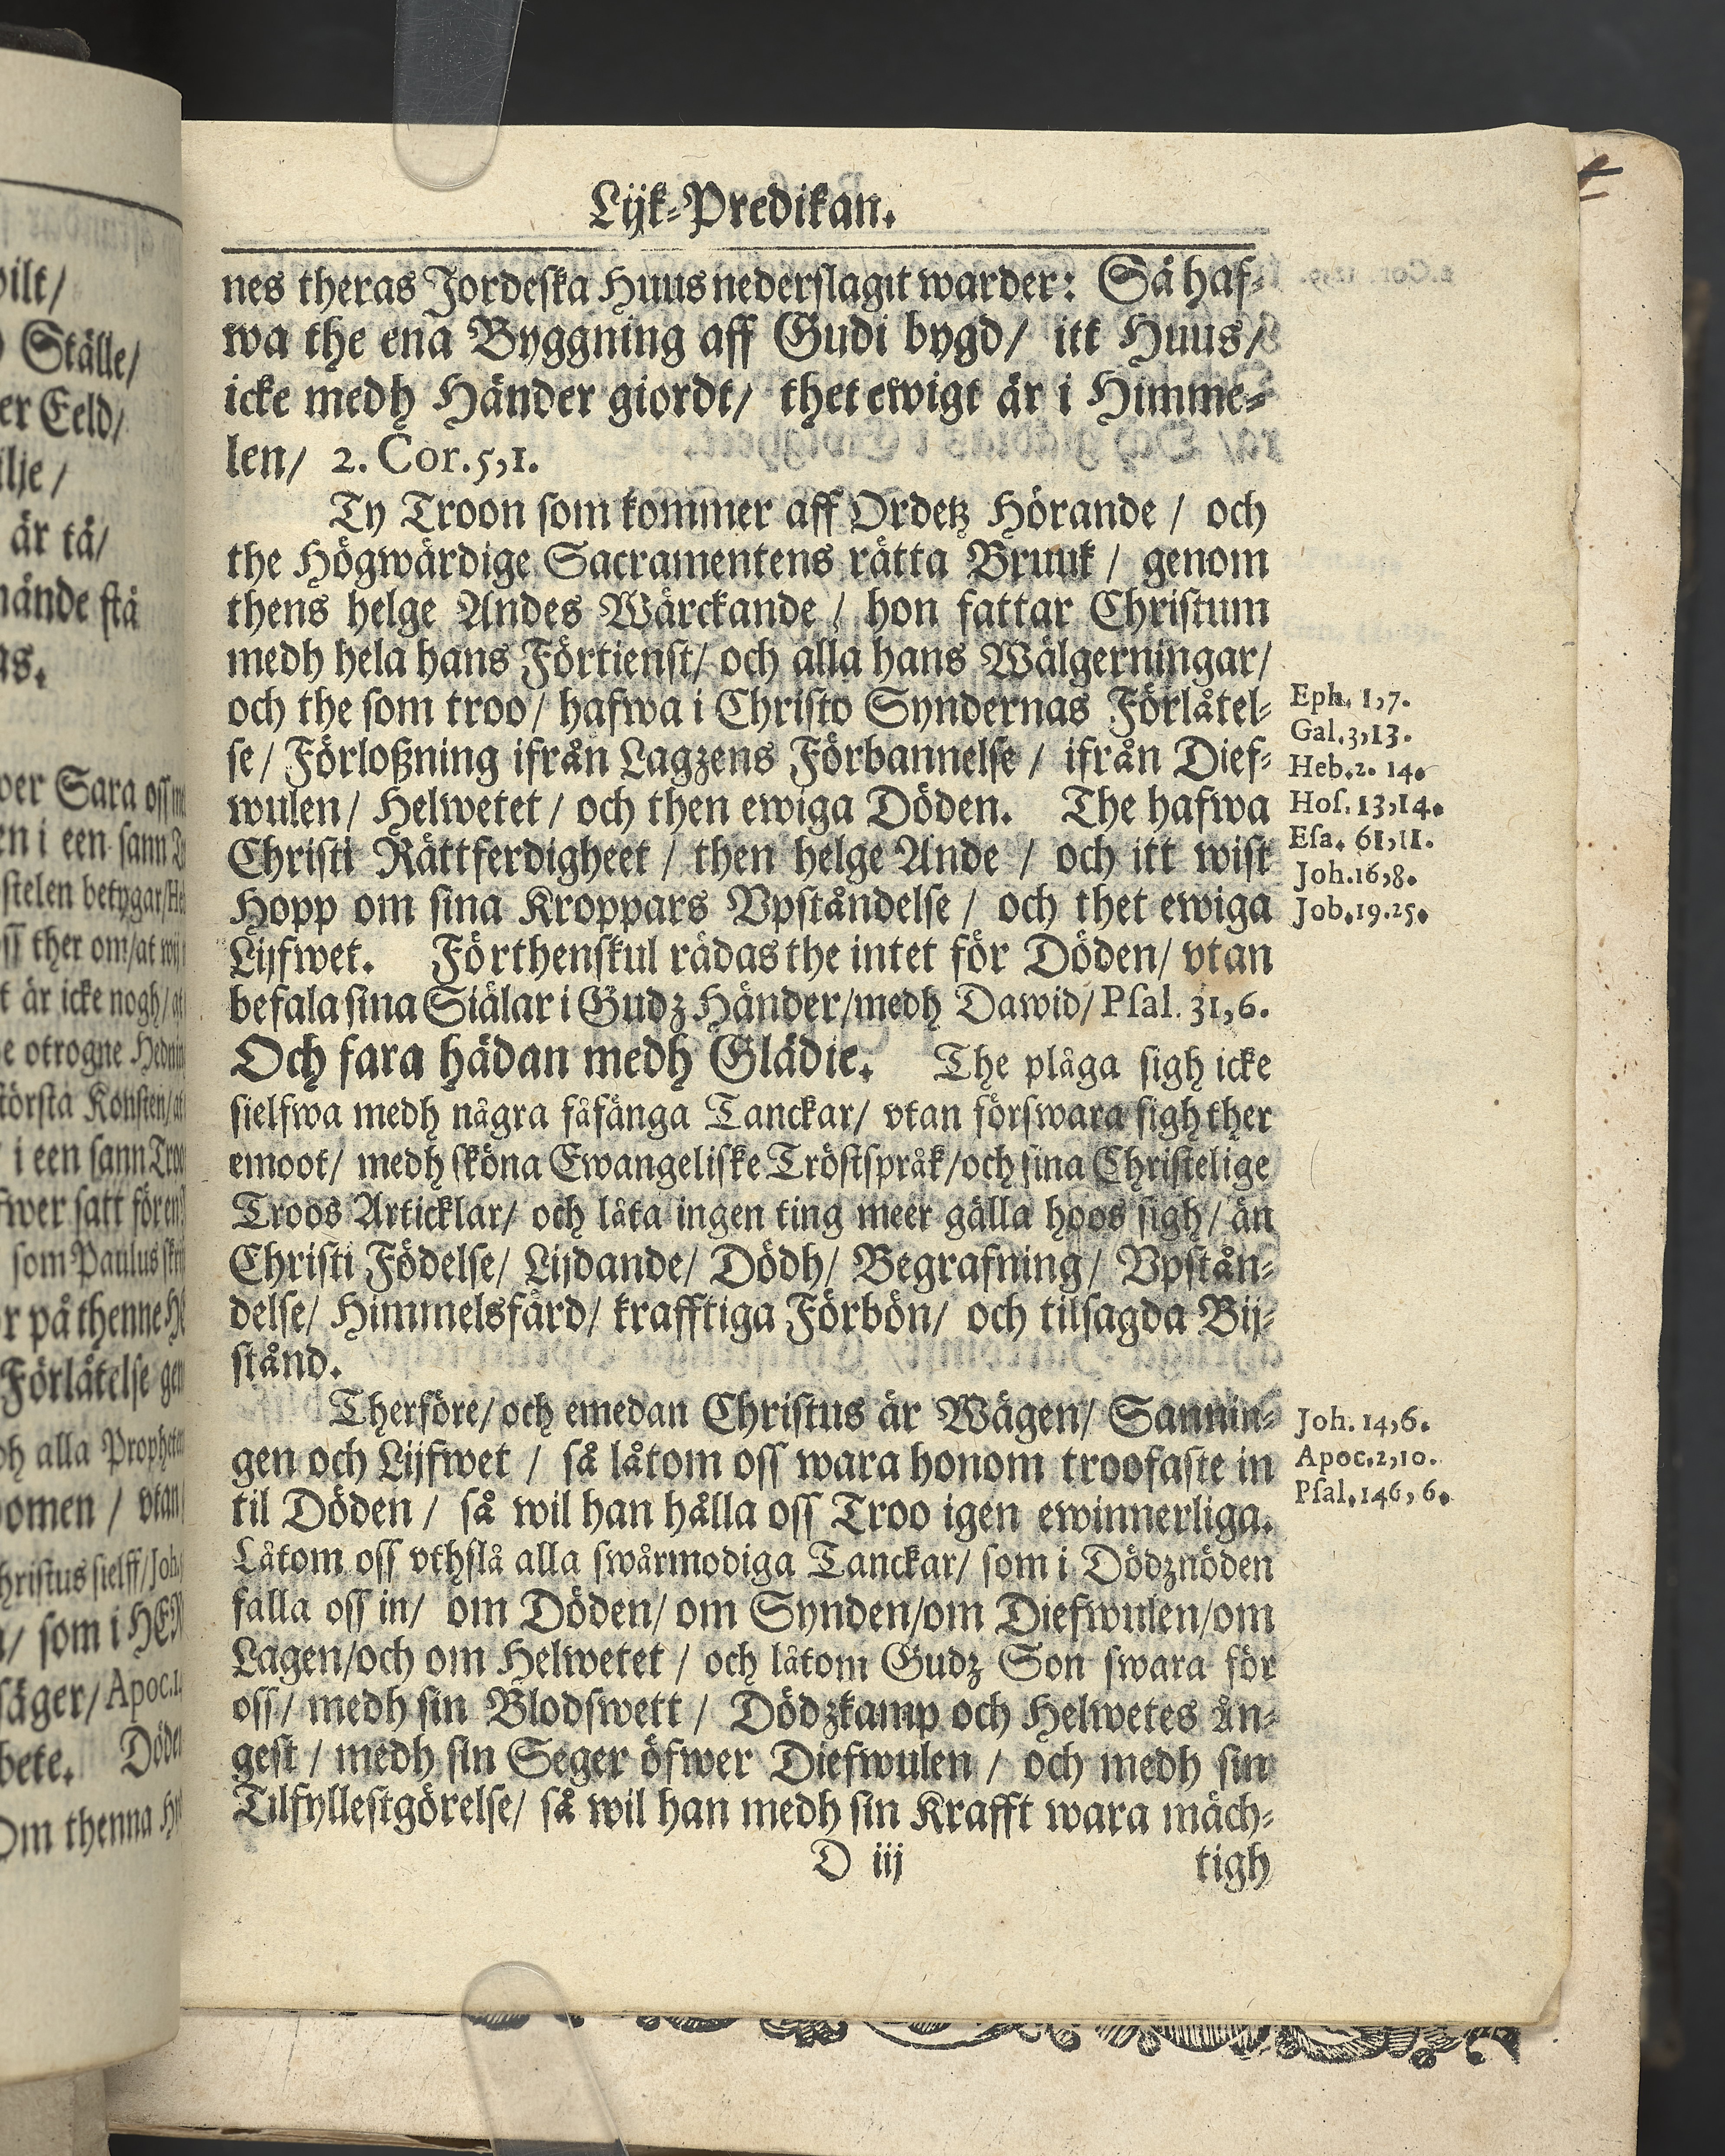 Lijk-Predikan.
nes theras Jordeska Huus nederslagit warder: Så haf-
wa the ena Byggning aff Gudi bygd/ itt Huus/
icke medh Händer giordt/ thet ewigt är i Himme-
len/ 2. Cor. 5,1.
Ty Troon som kommer aff Ordetz Hörande / och
the Högwärdige Sacramentens rätta Bruuk / genom
thens helge Andes Wärckande / hon fattar Christum
medh hela hans Förtienst/ och alla hans Wälgerningar/
och the som troo/ hafwa i Christo Syndernas Förlåtel-
se/ Förloßning ifrån Lagzens Förbannelse / ifrån Dief-
wulen/ Helwetet / och then ewiga Döden. The hafwa
Christi Rättferdigheet / then helge Ande / och itt wist
Hopp om sina Kroppars Vpståndelse / och thet ewiga
Lijfwet. Förthenskul rädas the intet för Döden/ vtan
befala sina Siälar i Gudz Händer/ medh Dawid/ Psal. 31,6.
Och fara hädan medh Glädie. The plåga sigh icke
sielfwa medh några fåfänga Tanckar/ vtan förswara sigh ther
emoot/ medh sköna Ewangeliske Tröstspråk/ och sina Christelige
Troos Articklar/ och låta ingen ting meer gälla hoos sigh/ än
Christi Födelse/ Lijdande/ Dödh/ Begrafning/ Vpstån-
delse/ Himmelsfärd/ krafftiga Förbön/ och tilsagda Bij-
stånd.
Therföre/ och emedan Christus är Wägen/ Sannin-
gen och Lijfwet / så låtom oss wara honom troofaste in
til Döden / så wil han hålla oss Troo igen ewinnerliga.
Låtom oss vthslå alla swårmodiga Tanckar/ som i Dödznöden
falla oss in/ om Döden/ om Synden/ om Diefwulen/ om
Lagen/ och om Helwetet / och låtom Gudz Son swara för
oss/ medh sin Blodswett / Dödzkamp och Helwetes Ån-
gest / medh sin Seger öfwer Diefwulen / och medh sin
Tilfyllestgörelse/ så wil han medh sin Krafft wara mäch-
D iij
tigh
Eph. 1,7.
Gal. 3,13.
Heb. 2. 14.
Hos. 13,14.
Esa. 61,11.
Joh. 16,8.
Job. 19.25.
Joh. 14,6.
Apoc. 2,10.
Psal. 146, 6.
Ställe/
er Eeld/
är tå/
Sara oss
en i een sann
betygar/
ther om/ at wij
är icke nogh/
otrogne
största Konsten/
i een sann Troo
satt för en
som Paulus
på thenne
Förlåtelse
alla
/ vtan
Christus sielff/ Joh.
/ som i
säger/ Apoc.
Om thenna